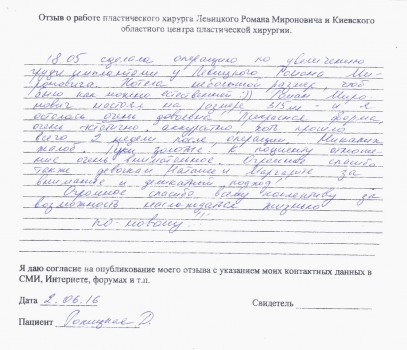 Отзыв о работе пластического хирурга Левицкого Романа Мироновича и Киевского
областного центра пластической хирургии.
18.05 сделала операцию по увеличению
груди имплантами у Левицкого Романа Ми-
роновича. Хотела небольшой размер, чтоб
было как можно естественней :)) Роман Миро-
нович настоял на размере 315 мл - и я
осталась очень довольна! Прекрасная форма,
очень аккуратно, хоть прошло
всего 2 недели после операции. Никаких
жалоб. К пациенту отноше-
ние очень внимательное. Огромное спасибо
также девочкам Наталии и Маргарите за
внимание и подход.
Огромное спасибо всему коллективу за
возможность наслаждаться жизнью
по-новому!!!
Я даю согласие на опубликование моего отзыва с указанием моих контактных данных в
СМИ, Интернете, форумах и т.п.
Дата 2.06.16 Свидетель
Пациент